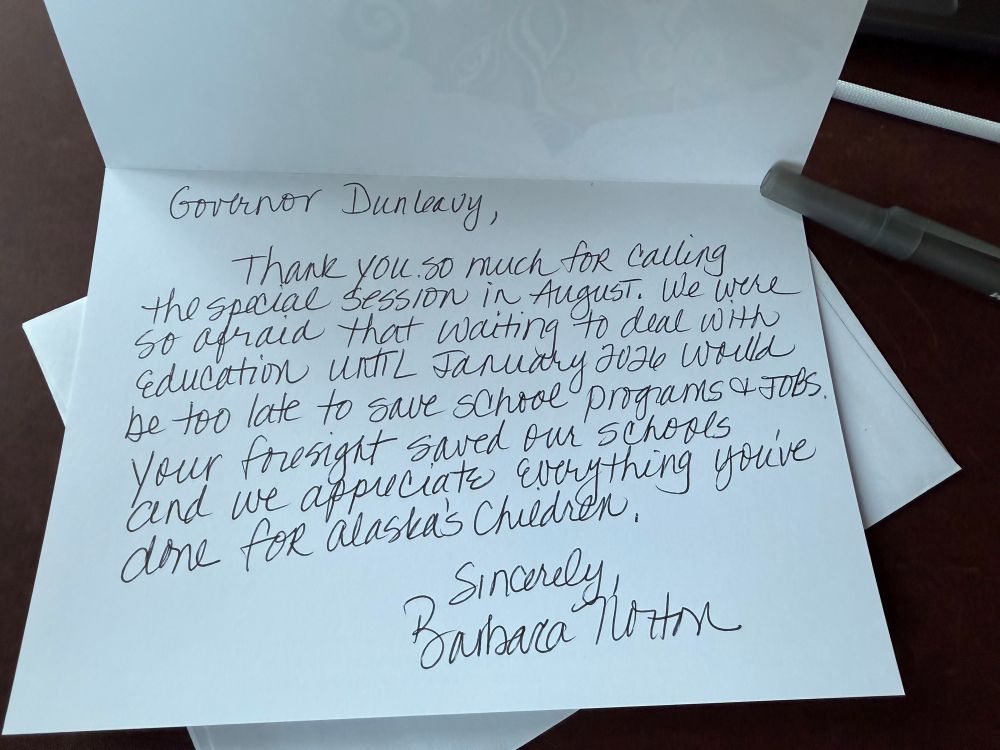 Governor Dunleavy,
Thank you so much for calling
the special session in August. We were
so afraid that waiting to deal with
Education until January 2026 would
be too late to save school programs & jobs.
Your foresight saved our schools
and we appreciate everything you've
done for Alaska's Children.
Sincerely,
Barbara Norton